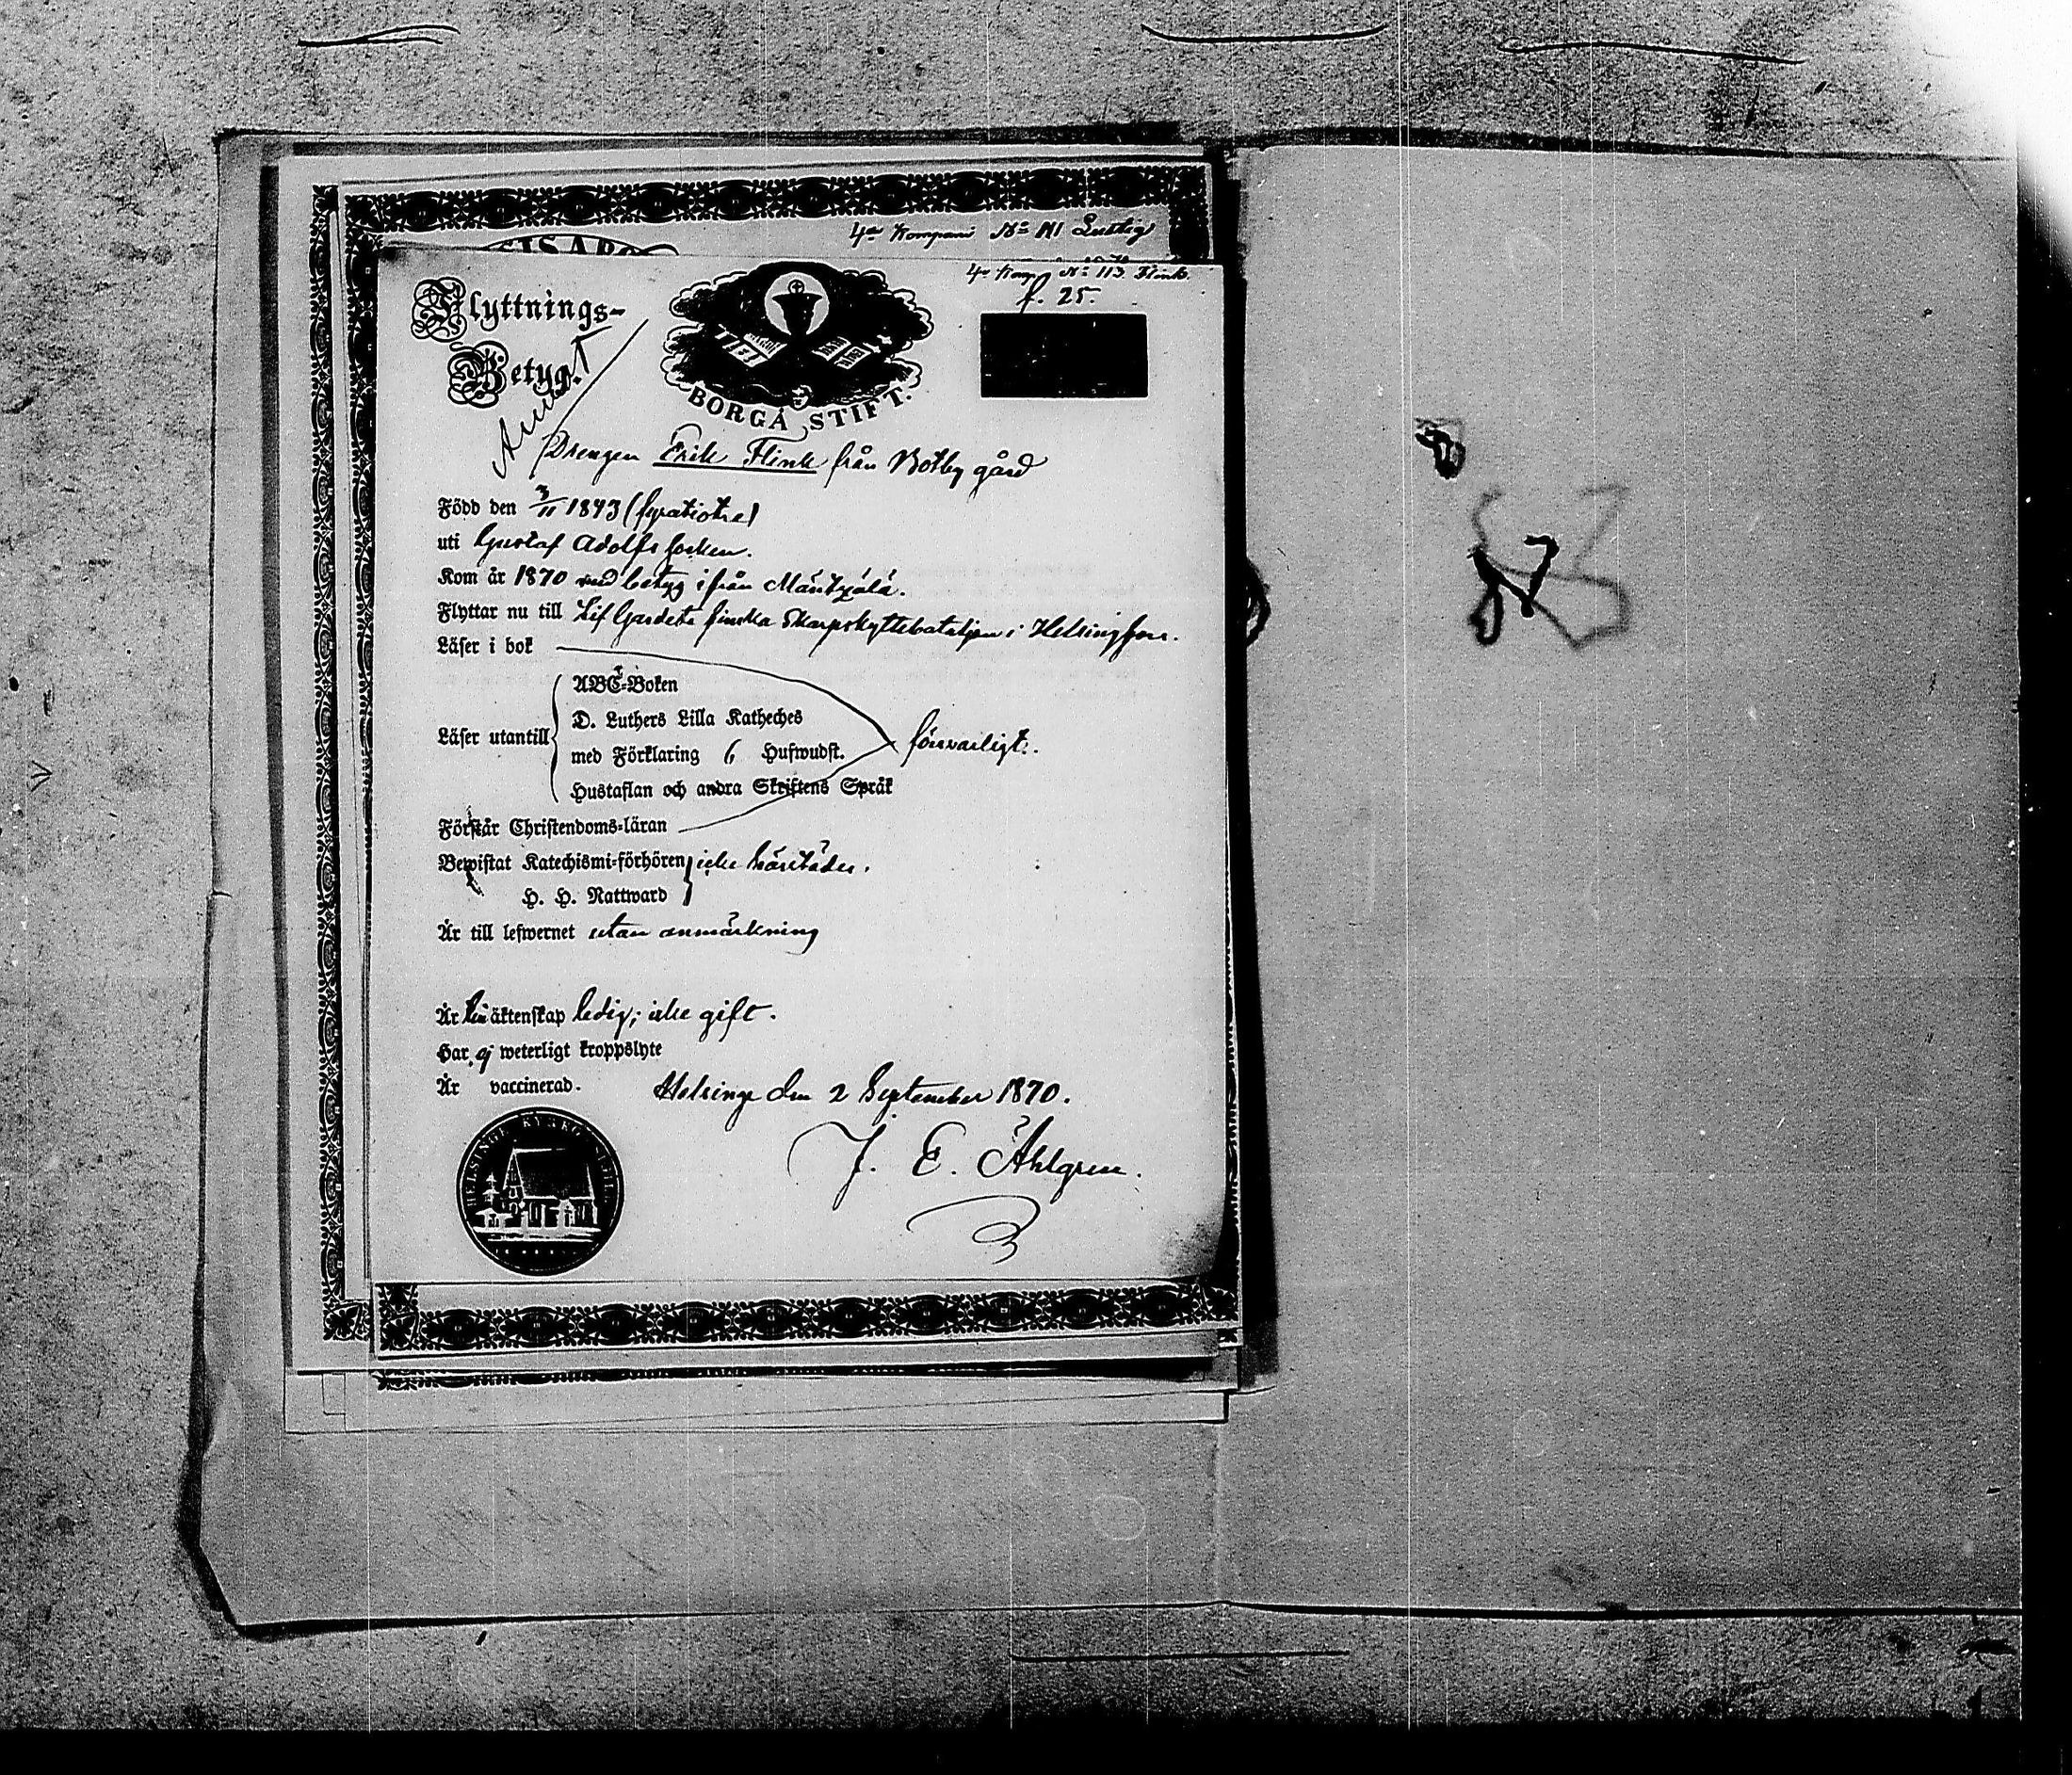 4de Kompani No 111 Lustig
4de Komp No 113. Flink.
f. 25.
Flyttnings-
Betyg.
BORGÅ STIFT.
Drengen Erik Flink från Botby gård
Född den 3/11 1843 (fyratiotre)
uti Gustaf Adolfs socken.
Kom år 1870 med betyg ifrån Mäntzälä.
Flyttar nu till Lif Gardets finska Skarpskyttebataljon i Helsingfors.
Läser i bok
ABC-Boken
D. Luthers Lilla Katheches
Läser utantill
med Förklaring 6 Hufwudst.
försvarligt.
Hustaflan och andra Skriftens Språk
Förstår Christendoms-läran
Bewistat Katechismi-förhören icke härstädes.
H. H. Nattward
Är till lefwernet utan anmärkning
Är till äktenskap ledig; icke gift.
Har ej weterligt kroppslyte
Är vaccinerad.
Helsinge den 2 September 1870.
J. E. Åhlgren.
HELSINGE KYRKO SIGILL